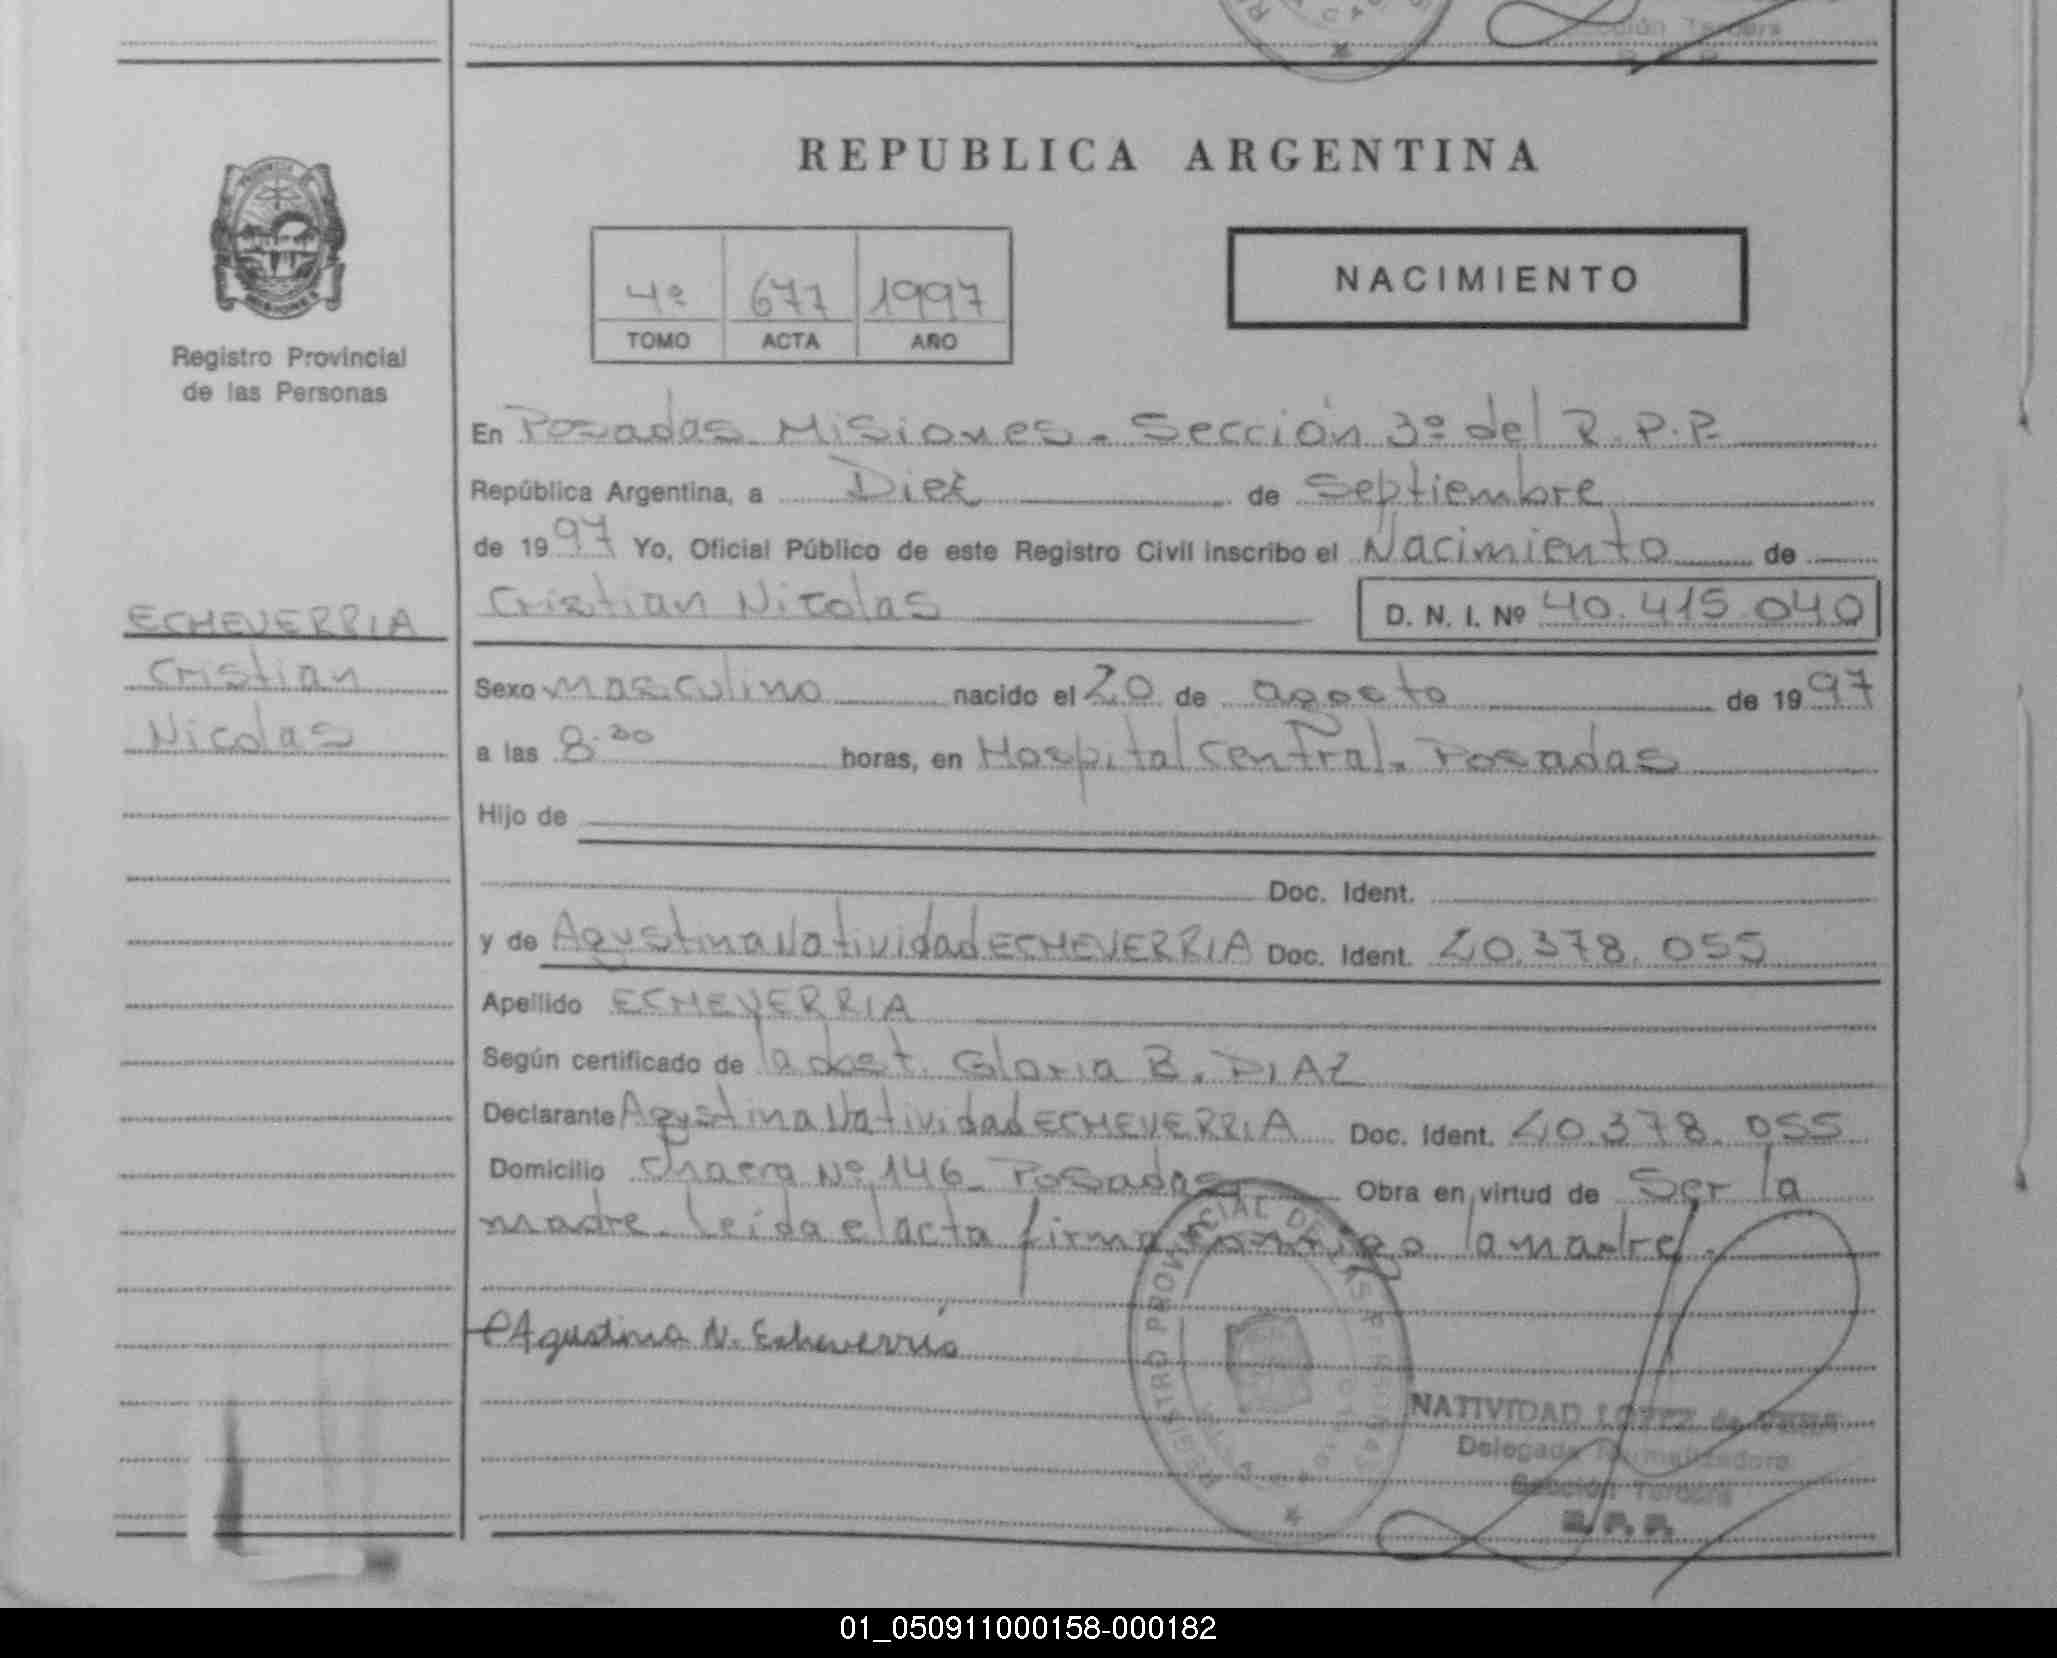 REPUBLICA ARGENTINA
4º 677 1997
TOMO ACTA AÑO
NACIMIENTO
Registro Provincial
de las Personas
En Posadas Misiones - Sección 3º del R.P.P.
República Argentina, a Diez de Septiembre
de 1997 Yo, Oficial Público de este Registro Civil inscribo el Nacimiento de
Cristian Nicolas D. N. I. Nº 40.415.040
ECHEVERRIA
Cristian
Nicolas
Sexo masculino nacido el 20 de agosto de 1997
a las 8 horas, en Hospital Central. Posadas
Hijo de
Doc. Ident.
y de Agustina Natividad ECHEVERRIA Doc. Ident. 20.378.055
Apellido ECHEVERRIA
Según certificado de la obst. Gloria B. DIAZ
Declarante Agustina Natividad ECHEVERRIA Doc. Ident. 20.378.055
Domicilio Chacra Nº 146 - Posadas Obra en virtud de Ser la
madre. Leida el acta firma conmigo la madre.
Agustina N. Echeverria
REGISTRO PROVINCIAL DE LAS PERSONAS
NATIVIDAD LOPEZ de
Delegada Normalizadora
Sección Tercera
R. P. P.
01_050911000158-000182